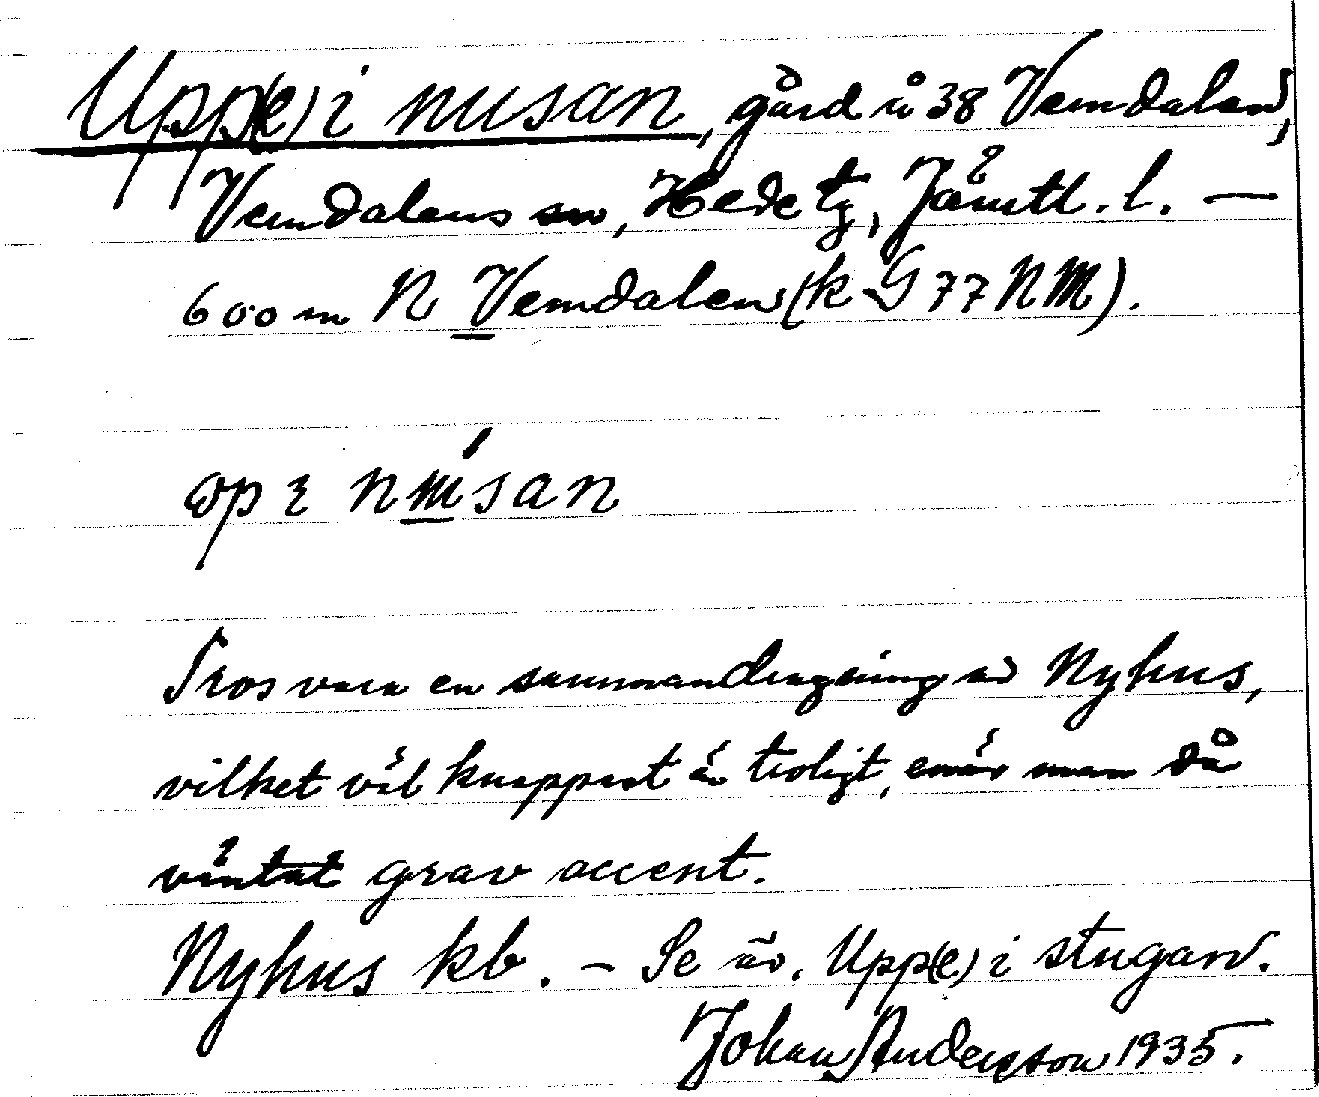 Upp(e) i nusan, gård å 38 Vemdalen,
Vemdalens sn, Hede tg, Jämtl. l. —
600 m N Vemdalen (k G 77 NM).
Tros vara en sammandragning av Nyhus,
vilket väl knappast är troligt, emär man då
väntat grav accent.
Nyhus kb. – Se äv. Upp(e) i stugan.
Johan Andersson 1935.